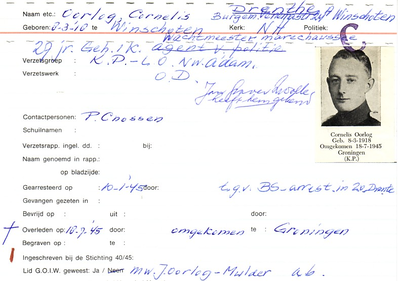 Drenthe
Naam etc.: Oorlog, Cornelis Burgem. Winschoten
Geboren: 8-3-18 te Winschoten Kerk: N.H. Politiek:
Wachtmeester Marechaussee C
29 jr. Geh. 1 K. agent v. politie
Verzetsgroep K.P.-L.O. N.W. Adam.
Verzetswerk : O.D.
Jan
Contactpersonen: P. Cnossen
Schuilnaam :
Verzetsrapp. ingel. dd. : bij:
Naam genoemd in rapp.:
op bladzijde:
Gearresteerd op : 10-1-45 door: t.g.v. BS-arrest. in Z.O. Drente
Gevangen gezeten in :
Bevrijd op : uit : door:
Overleden op: 10.7.45 door: omgekomen te : Groningen
Begraven op : te :
Ingeschreven bij de Stichting 40/45:
Lid G.O.I.W. geweest: Ja / Neen mw. J. Oorlog-Mulder a.b.
Cornelis Oorlog
Geb. 8-3-1918
Omgekomen 18-7-1945
Groningen
(K.P.)